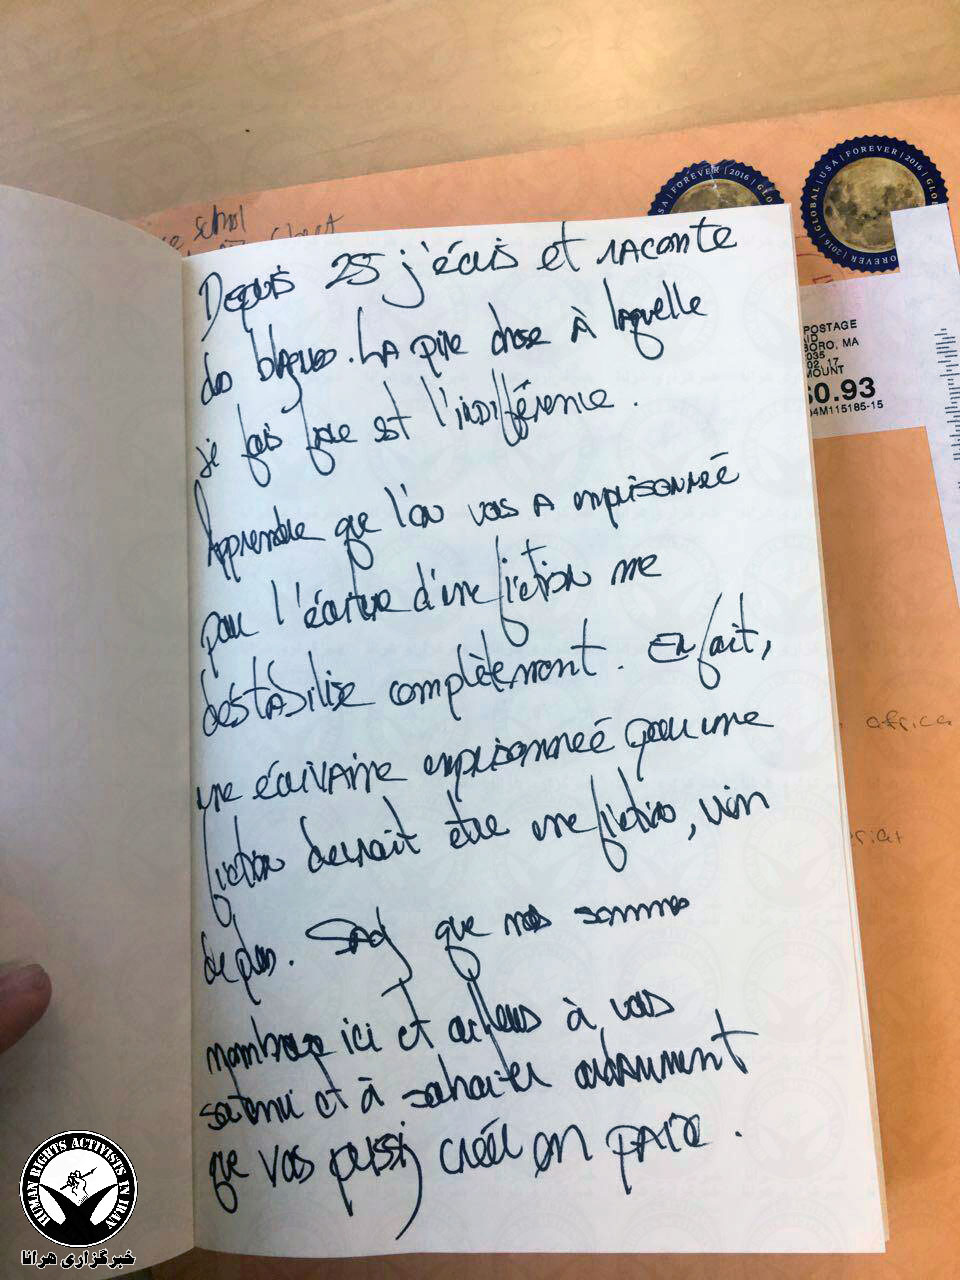 schol
Depuis 25 j'écris et raconte
des blagues. La pire chose à laquelle
je fais face est l'indifférence.
Apprendre que l'on vous a emprisonnée
pour l'écriture d'une fiction me
déstabilise complètement. En fait,
une écrivaine emprisonnée pour une
fiction devrait être une fiction, rien
de plus. Sachez que nous sommes
nombreux ici et ailleurs à vous
soutenir et à souhaiter ardemment
que vous puissiez créer en paix.
FOREVER | 2016 | GLOBAL
GLOBAL | USA | FOREVER | 2016 | GLO
FOREVER
POSTAGE
AID
BORO, MA
035
02 17
MOUNT
$0.93
04M115185-15
africa
HUMAN RIGHTS ACTIVISTS IN IRAN
خبرگزاری هرانا